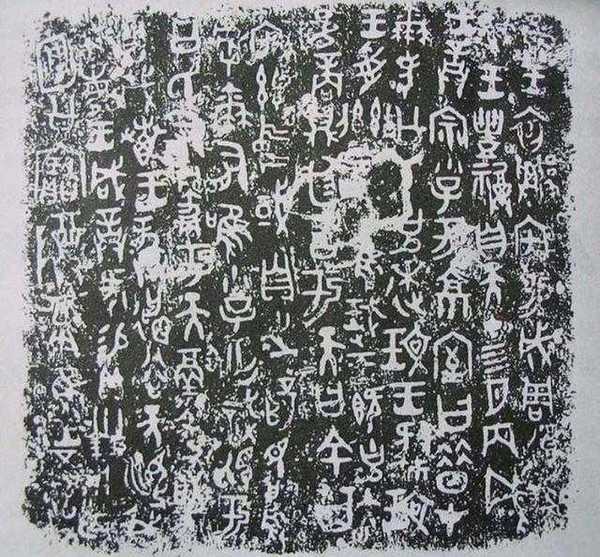 隹王初遷宅于成周復爯
珷王豊福自天才四月丙戌
王誥宗小子于京室曰昔才
爾考公氏克逨玟王肆玟
王受茲大令隹珷王既克大
邑商則廷告于天曰余其
宅茲中或自之乂民烏
虖爾有唯小子亡識視于
公氏有爵于天徹令敬
享哉叀王恭德谷天訓我
不敏王咸誥何易貝卅朋用乍
公寶尊彝隹王五祀